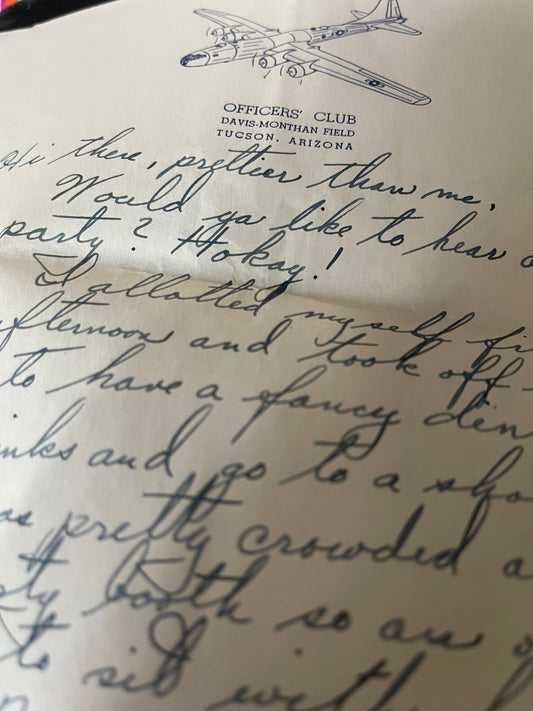 OFFICERS' CLUB
DAVIS-MONTHAN FIELD
TUCSON, ARIZONA
Hi there, prettier than me,
Would ya like to hear a
party? Hokay!
I allotted myself
and took off
to have a fancy
and go to a
pretty crowded
booth so an
to sit with